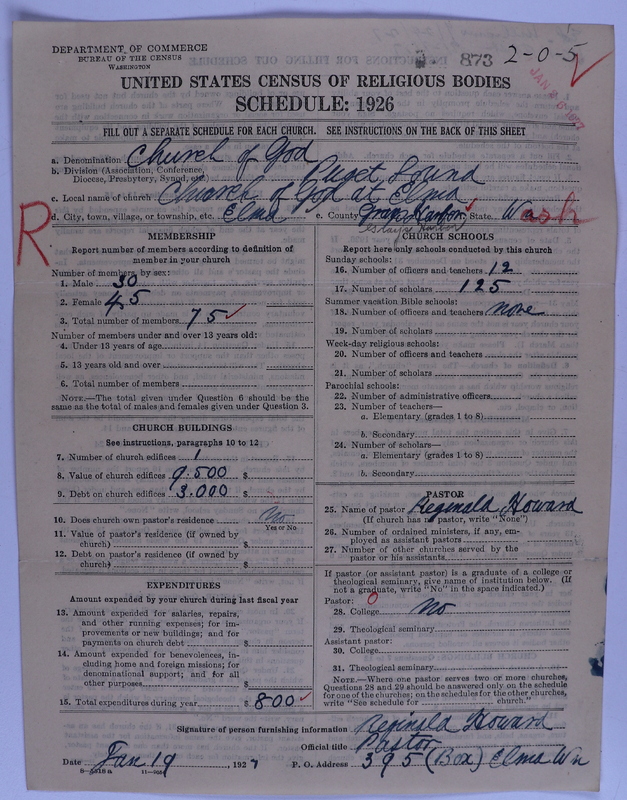 DEPARTMENT OF COMMERCE
BUREAU OF THE CENSUS
WASHINGTON
873 2-0-5
UNITED STATES CENSUS OF RELIGIOUS BODIES
SCHEDULE: 1926
FILL OUT A SEPARATE SCHEDULE FOR EACH CHURCH. SEE INSTRUCTIONS ON THE BACK OF THIS SHEET
a. Denomination Church of God
b. Division (Association, Conference, Diocese, Presbytery, Synod, etc.) Puget Sound
c. Local name of church Church of God at Elma
d. City, town, village, or township, etc. Elma e. County Grays Harbor State Wash
Grays Harbor
R
MEMBERSHIP
Report number of members according to definition of
member in your church
Number of members by sex:
1. Male 30
2. Female 45
3. Total number of members 75
Number of members under and over 13 years old:
4. Under 13 years of age
5. 13 years old and over
6. Total number of members
NOTE.—The total given under Question 6 should be
same as the total of males and females given under Question 3.
CHURCH BUILDINGS
See instructions, paragraphs 10 to 12
7. Number of church edifices 1
8. Value of church edifices 9.500 $
9. Debt on church edifices 3.000 $
10. Does church own pastor's residence No
Yes or No
11. Value of pastor's residence (if owned by
church) $
12. Debt on pastor's residence (if owned by
church) $
EXPENDITURES
Amount expended by your church during last fiscal year
13. Amount expended for salaries, repairs,
and other running expenses; for im-
provements or new buildings; and for
payments on church debt $
14. Amount expended for benevolences, in-
cluding home and foreign missions; for
denominational support; and for all
other purposes $
15. Total expenditures during year $ 800
CHURCH SCHOOLS
Report here only schools conducted by this church
Sunday schools:
16. Number of officers and teachers 12
17. Number of scholars 125
Summer vacation Bible schools:
18. Number of officers and teachers none
19. Number of scholars
Week-day religious schools:
20. Number of officers and teachers
21. Number of scholars
Parochial schools:
22. Number of administrative officers
23. Number of teachers—
a. Elementary (grades 1 to 8)
b. Secondary
24. Number of scholars—
a. Elementary (grades 1 to 8)
b. Secondary
PASTOR
25. Name of pastor Reginald Howard
(If church has no pastor, write "None")
26. Number of ordained ministers, if any, em-
ployed as assistant pastors
27. Number of other churches served by the
pastor or his assistants
If pastor (or assistant pastor) is a graduate of a college or
theological seminary, give name of institution below. (If
not a graduate, write "No" in the space indicated.)
Pastor: 0
28. College No
29. Theological seminary
Assistant pastor:
30. College
31. Theological seminary
NOTE.—Where one pastor serves two or more churches,
Questions 28 and 29 should be answered only on the schedule
for one of the churches; on the schedules for the other churches,
write "See schedule for church."
Signature of person furnishing information Reginald Howard
Official title Pastor
Date Jan 19, 1927 P. O. Address 395 (Box) Elma Wn